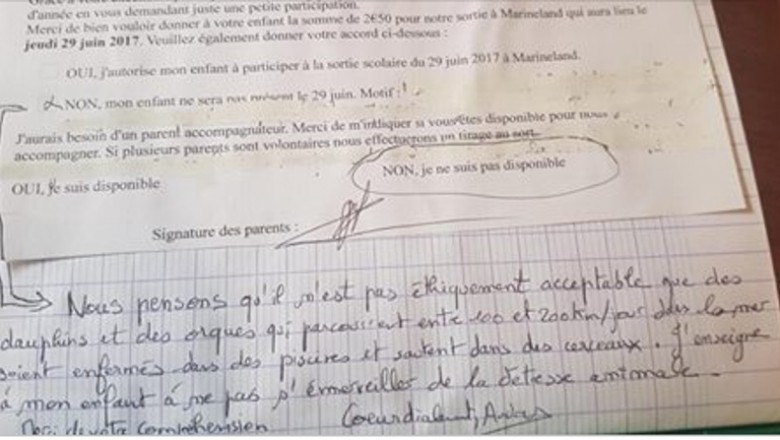 d'année en vous demandant juste une petite participation.
Merci de bien vouloir donner à votre enfant la somme de 2€50 pour notre sortie à Marineland qui aura lieu le
jeudi 29 juin 2017. Veuillez également donner votre accord ci-dessous :
OUI, j'autorise mon enfant à participer à la sortie scolaire du 29 juin 2017 à Marineland.
NON, mon enfant ne sera pas présent le 29 juin. Motif :
J'aurais besoin d'un parent accompagnateur. Merci de m'indiquer si vous êtes disponible pour nous
accompagner. Si plusieurs parents sont volontaires nous effectuerons un tirage au sort.
OUI, je suis disponible
NON, je ne suis pas disponible
Signature des parents :
Nous pensons qu'il n'est pas éthiquement acceptable que des
dauphins et des orques qui parcourent entre 100 et 200km/jour dans la mer
soient enfermés dans des piscines et sautent dans des cerceaux. J'enseigne
à mon enfant à ne pas s'émerveiller de la détresse animale.
Merci de votre compréhension